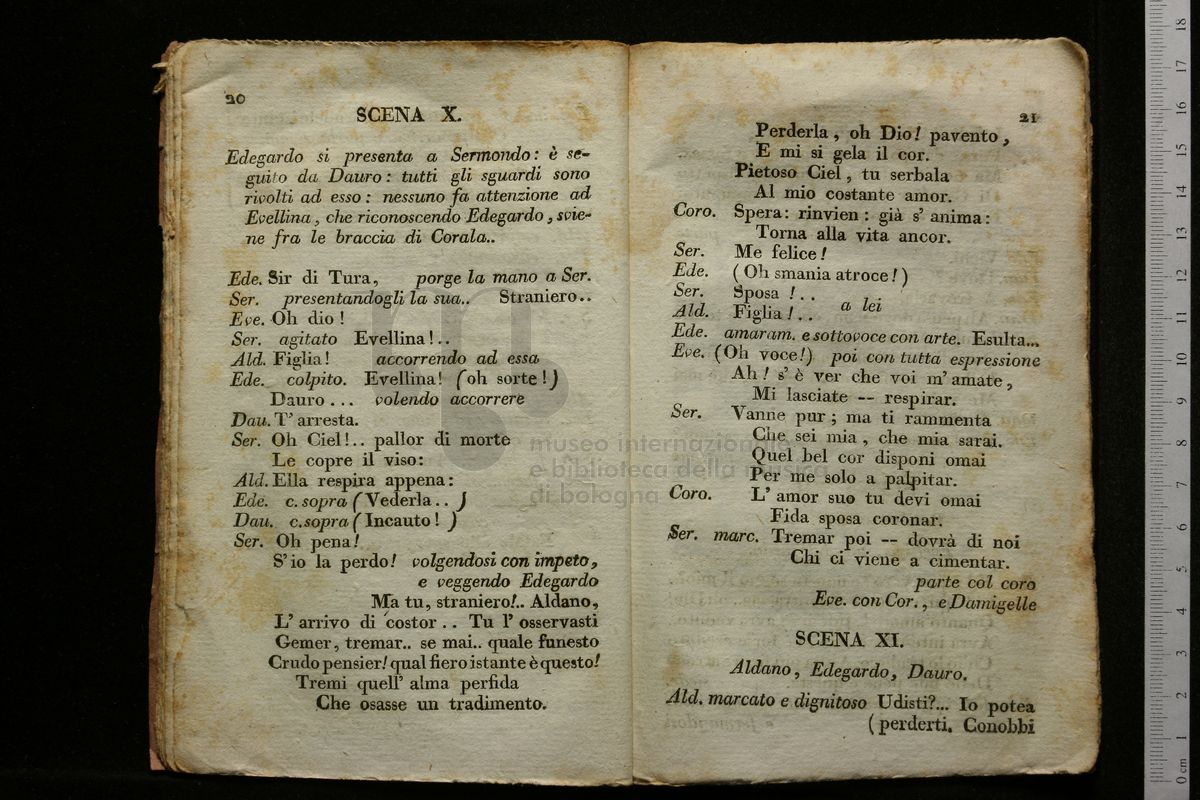 20
SCENA X.
Edegardo si presenta a Sermondo: è se-
guito da Dauro: tutti gli sguardi sono
rivolti ad esso: nessuno fa attenzione ad
Evellina, che riconoscendo Edegardo, svie-
ne fra le braccia di Corala..
Ede. Sir di Tura, porge la mano a Ser.
Ser. presentandogli la sua.. Straniero..
Eve. Oh dio!
Ser. agitato Evellina!..
Ald. Figlia! accorrendo ad essa
Ede. colpito. Evellina! (oh sorte!)
Dauro... volendo accorrere
Dau. T' arresta.
Ser. Oh Ciel!.. pallor di morte
Le copre il viso:
Ald. Ella respira appena:
Ede. c. sopra (Vederla..)
Dau. c. sopra (Incauto!)
Ser. Oh pena!
S' io la perdo! volgendosi con impeto,
e veggendo Edegardo
Ma tu, straniero!.. Aldano,
L' arrivo di costor.. Tu l' osservasti
Gemer, tremar.. se mai.. quale funesto
Crudo pensier! qual fiero istante è questo!
Tremi quell' alma perfida
Che osasse un tradimento.
21
Perderla, oh Dio! pavento,
E mi si gela il cor.
Pietoso Ciel, tu serbala
Al mio costante amor.
Coro. Spera: rinvien: già s' anima:
Torna alla vita ancor.
Ser. Me felice!
Ede. (Oh smania atroce!)
Ser. Sposa!..
a lei
Ald. Figlia!..
Ede. amaram. e sottovoce con arte. Esulta...
Eve. (Oh voce!) poi con tutta espressione
Ah! s' è ver che voi m' amate,
Mi lasciate -- respirar.
Ser. Vanne pur; ma ti rammenta
Che sei mia, che mia sarai.
Quel bel cor disponi omai
Per me solo a palpitar.
Coro. L' amor suo tu devi omai
Fida sposa coronar.
Ser. marc. Tremar poi -- dovrà di noi
Chi ci viene a cimentar.
parte col coro
Eve. con Cor., e Damigelle
SCENA XI.
Aldano, Edegardo, Dauro.
Ald. marcato e dignitoso Udisti?... Io potea
(perderti. Conobbi
museo internazionale
e biblioteca della musica
di bologna
0 cm 1 2 3 4 5 6 7 8 9 10 11 12 13 14 15 16 17 18